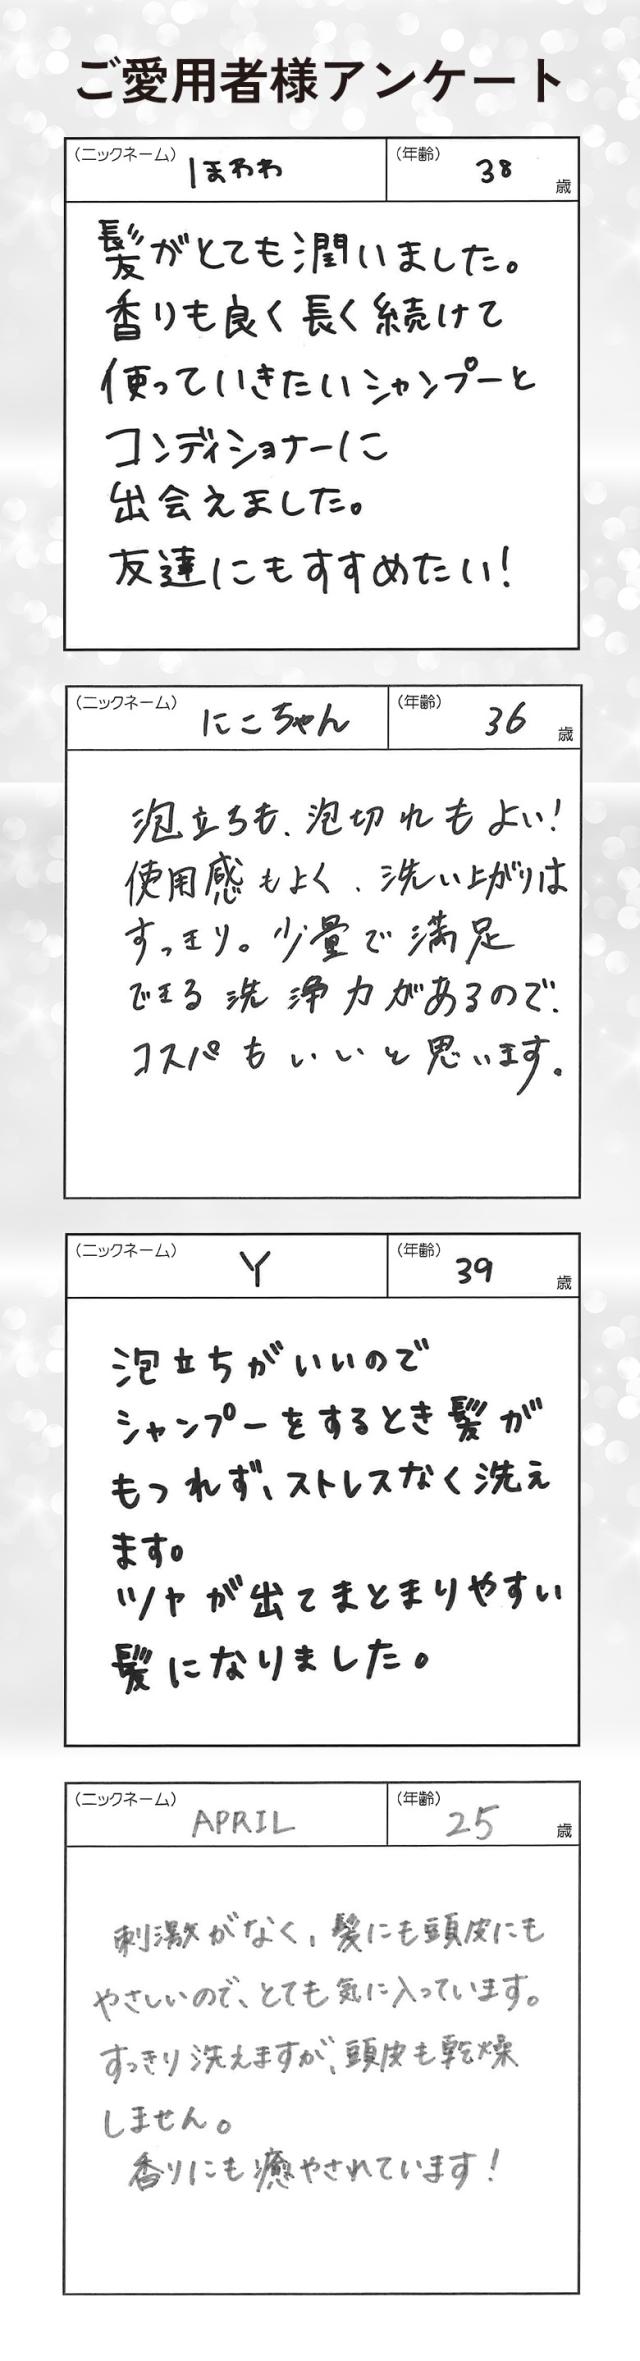 ご愛用者様アンケート
(ニックネーム) ほわわ (年齢) 38 歳
髪がとても潤いました。
香りも良く長く続けて
使っていきたいシャンプーと
コンディショナーに
出会えました。
友達にもすすめたい!
(ニックネーム) にこちゃん (年齢) 36 歳
泡立ちも、泡切れもよい!
使用感もよく、洗い上がりは
すっきり。少量で満足
できる洗浄力があるので、
コスパもいいと思います。
(ニックネーム) Y (年齢) 39 歳
泡立ちがいいので
シャンプーをするとき髪が
もつれず、ストレスなく洗え
ます。
ツヤが出てまとまりやすい
髪になりました。
(ニックネーム) APRIL (年齢) 25 歳
刺激がなく、髪にも頭皮にも
やさしいので、とても気に入っています。
すっきり洗えますが、頭皮も乾燥
しません。
香りにも癒やされています!